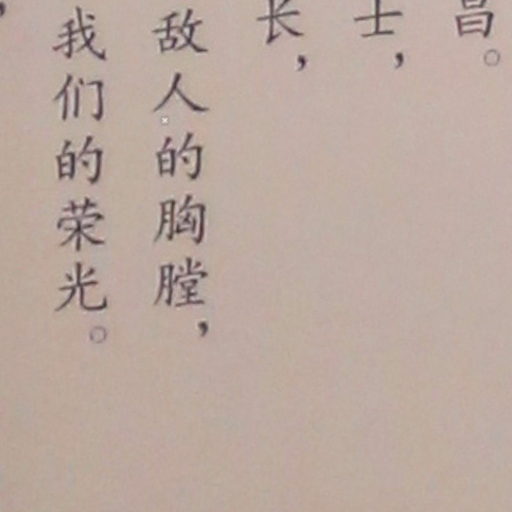 昌。
士，
长，
敌人的胸膛，
我们的荣光。
，